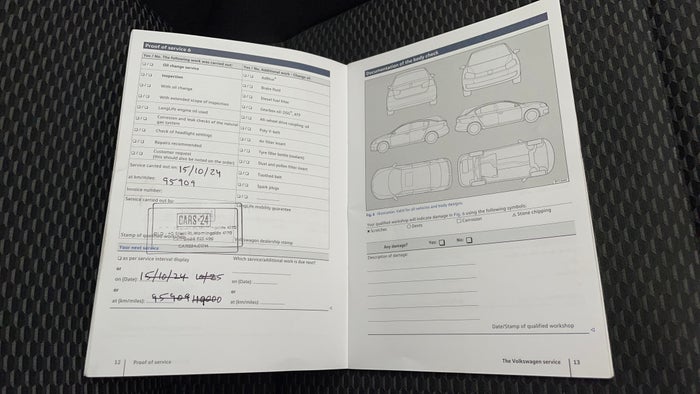 Proof of service 6
Yes / No, The following work was carried out:
Oil change service
Inspection
With oil change
With extended scope of inspection
LongLife engine oil used
Corrosion and leak checks of the natural
gas system
Check of headlight settings
Repairs recommended
Customer request
(this should also be noted on the order)
Service carried out on: 15/10/24
at km/miles: 95909
Invoice number:
Service carried out by
CARS·24
Stamp of qualified workshop
Yes / No, Additional work - Change of:
AdBlue®
Brake fluid
Diesel fuel filter
Gearbox oil DSG®, ATF
All-wheel drive coupling oil
Poly V-belt
Air filter insert
Tyre filler bottle (sealant)
Dust and pollen filter insert
Toothed belt
Spark plugs
LongLife mobility guarantee
Volkswagen dealership stamp
Your next service
as per service interval display
or
on (Date): 15/10/24 10/25
or
at (km/miles): 95909 110000
Which service/additional work is due next?
on (Date):
or
at (km/miles):
12 Proof of service
Documentation of the body check
Fig. 6 Illustration: Valid for all vehicles and body designs.
Your qualified workshop will indicate damage in Fig. 6 using the following symbols:
× Scratches O Dents □ Corrosion △ Stone chipping
Any damage? Yes: No:
Description of damage:
Date/Stamp of qualified workshop
The Volkswagen service 13